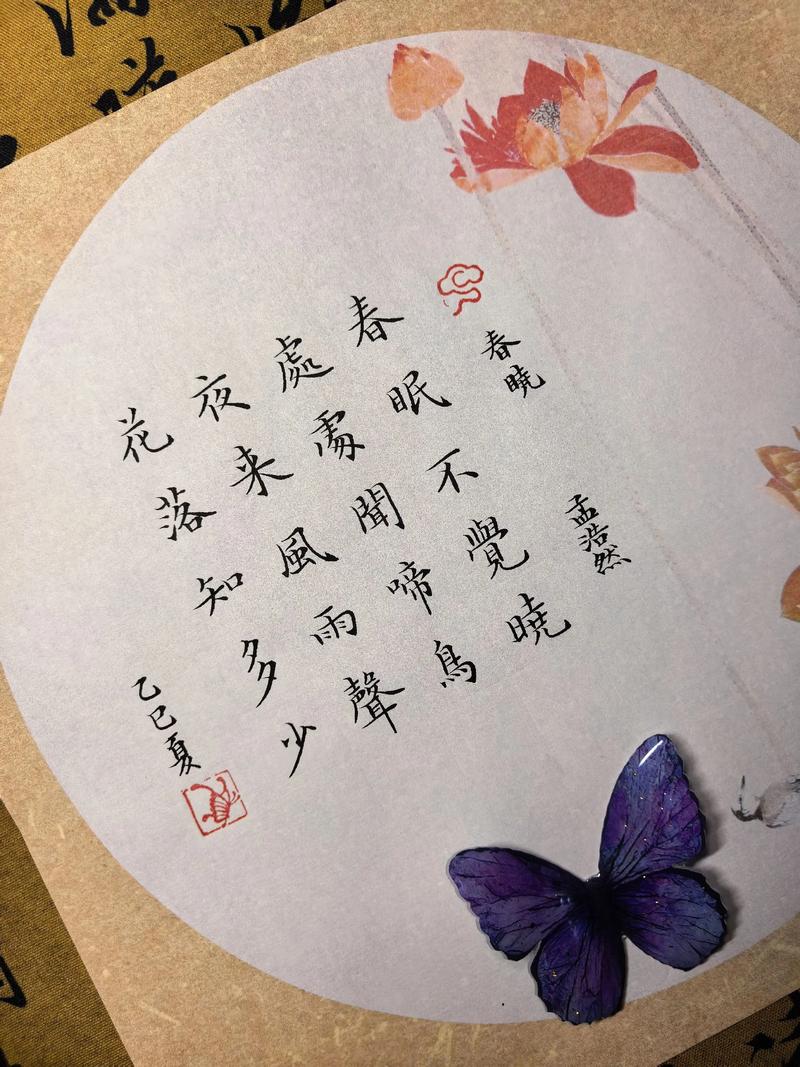 春暁
孟浩然
春眠不覺暁
處處聞啼鳥
夜来風雨聲
花落知多少
乙巳夏